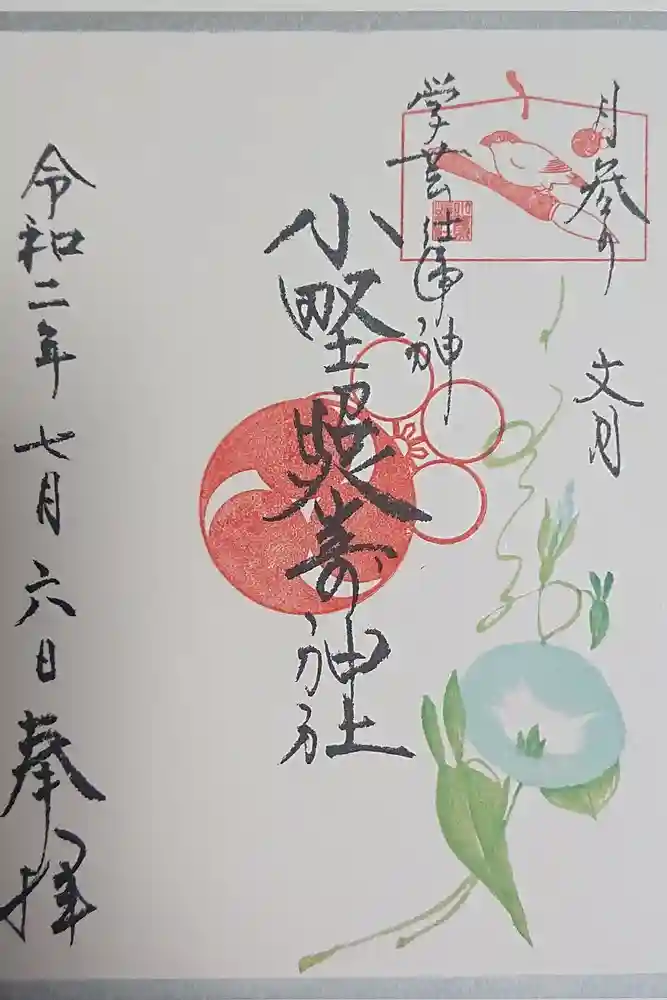 月参り
文月
学芸上達神
小野照崎神社
令和二年七月六日奉拝